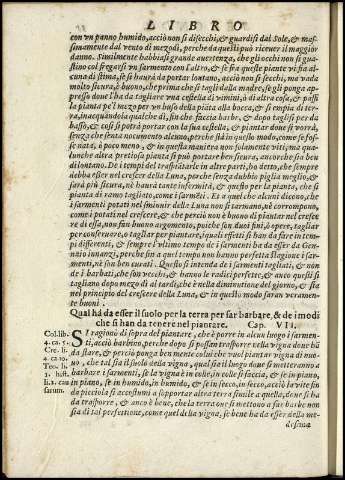 LIBRO
con vn panno humido, acciò non si disecchi, & guardisi dal Sole, & mas-
simamente dal vento di mezodì, perche da questi può riceuer il maggior
danno. Similmente habbiasi grande auertenza, che gli occhi non si gua-
stino col fregarsi vn sarmento con l'altro, & se fra queste piante vi sia al-
cuna di stima, se si haurà da portar lontano, acciò non si secchi, ma vada
molto sicura, è buono, che prima che si tagli dalla madre, se gli ponga ap-
presso doue l'ha da tagliare vna cestella di vimini, ò di altra cosa, & passi
la pianta pe'l mezo per vn buso della detta bocca, & si empia di ter-
ra, inacquandola qualche dì, sin che faccia barbe, & dopo taglisi per da
basso, & così si potrà portar con la sua cestella, & piantar doue si vorrà,
senza che senta nocumento alcuno, perche stà in questo modo, come se fos-
se nata, ò poco meno, & in questa maniera non solamente viti, ma qua-
lunche altra pretiosa pianta si può portare ben sicura, ancorche sia ben
dilontano. De i tempi del trasfettarle in altre parti, ho detto, che sempre
debbia esser nel crescer della Luna, perche senza dubbio piglia meglio, &
sarà più sicura, nè haurà tante infermità, & questo per la pianta, che si
pianta di ramo tagliato, come i sarmēti. Et a quel che alcuni dicono, che
i sarmenti potati nel sminuir della Luna non si tarmano, nè corrompono,
come i potati nel crescere, & che perciò non è buono di piantar nel cresce
re di essa, non fan buono argomento, poiche son duoi fini, ò opere, tagliar
per conseruare, ò tagliar per piantare, i quali effetti si han da fare in tem-
pi differenti, & sempre l'vltimo tempo de i sarmenti ha da esser da Gen-
naio innanzi, perche sin a quel tempo non hanno perfetta stagione i sar-
menti, nè son ben curati. Questo si intenda de i sarmenti tagliati, & non
de i barbati, che son vecchi, & hanno le radici perfette, & anco questi si
tagliano dopo mezo dì al tardi, che è nella diminution del giorno, & sia
nel principio del crescere della Luna, & in questo modo saran veramen-
te buoni.
Qual hà da esser il suolo per la terra per far barbare, & de i modi
che si han da tenere nel piantare. Cap. VII.
Col. lib.
4. ca. 5.
Cre. li.
4. ca. 10.
Teo. li.
2. hist.
li. 2. cau
sarum.
SI ragionò di sopra del piantare, che è porre in alcun luogo i sarmen-
ti, acciò barbino, perche dopo si possan trasporre nella vigna doue hā
da stare, & perciò ponga ben mente colui che vuol piantar vigna di nuo-
uo, che tal sia il suolo della vigna, qual sia il luogo doue si metteranno a
barbare i sarmenti, se la vigna è in colle, in colle si faccia, & se in piano,
in piano, se in humido, in humido, & se in secco, in secco, acciò la vite sin
da picciola si accostumi a sopportar altra terra simile a quella, doue si ha
da trasporre, & anco è bene, che la terra oue si mettono a far barbe non
sia di tal perfettione, come quel della vigna, se bene ha da esser della me-
desima